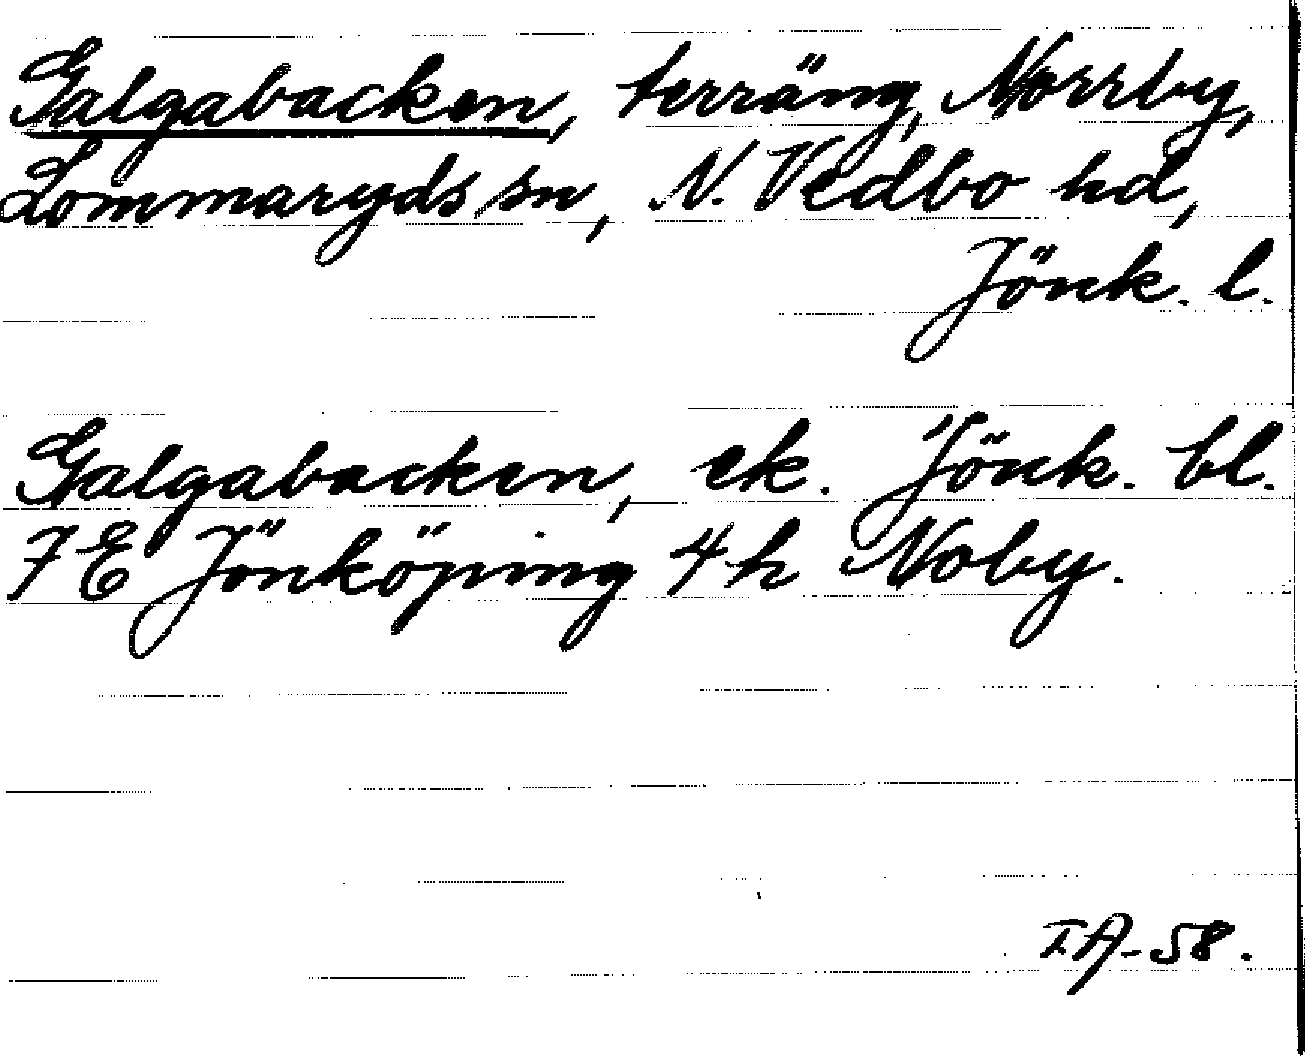 Galgabacken, terräng, Norrby,
Lommaryds sn, N. Vedbo hd,
Jönk. l.
Galgabacken, ek. Jönk. bl.
7E Jönköping 4h Noby.
IA-58.